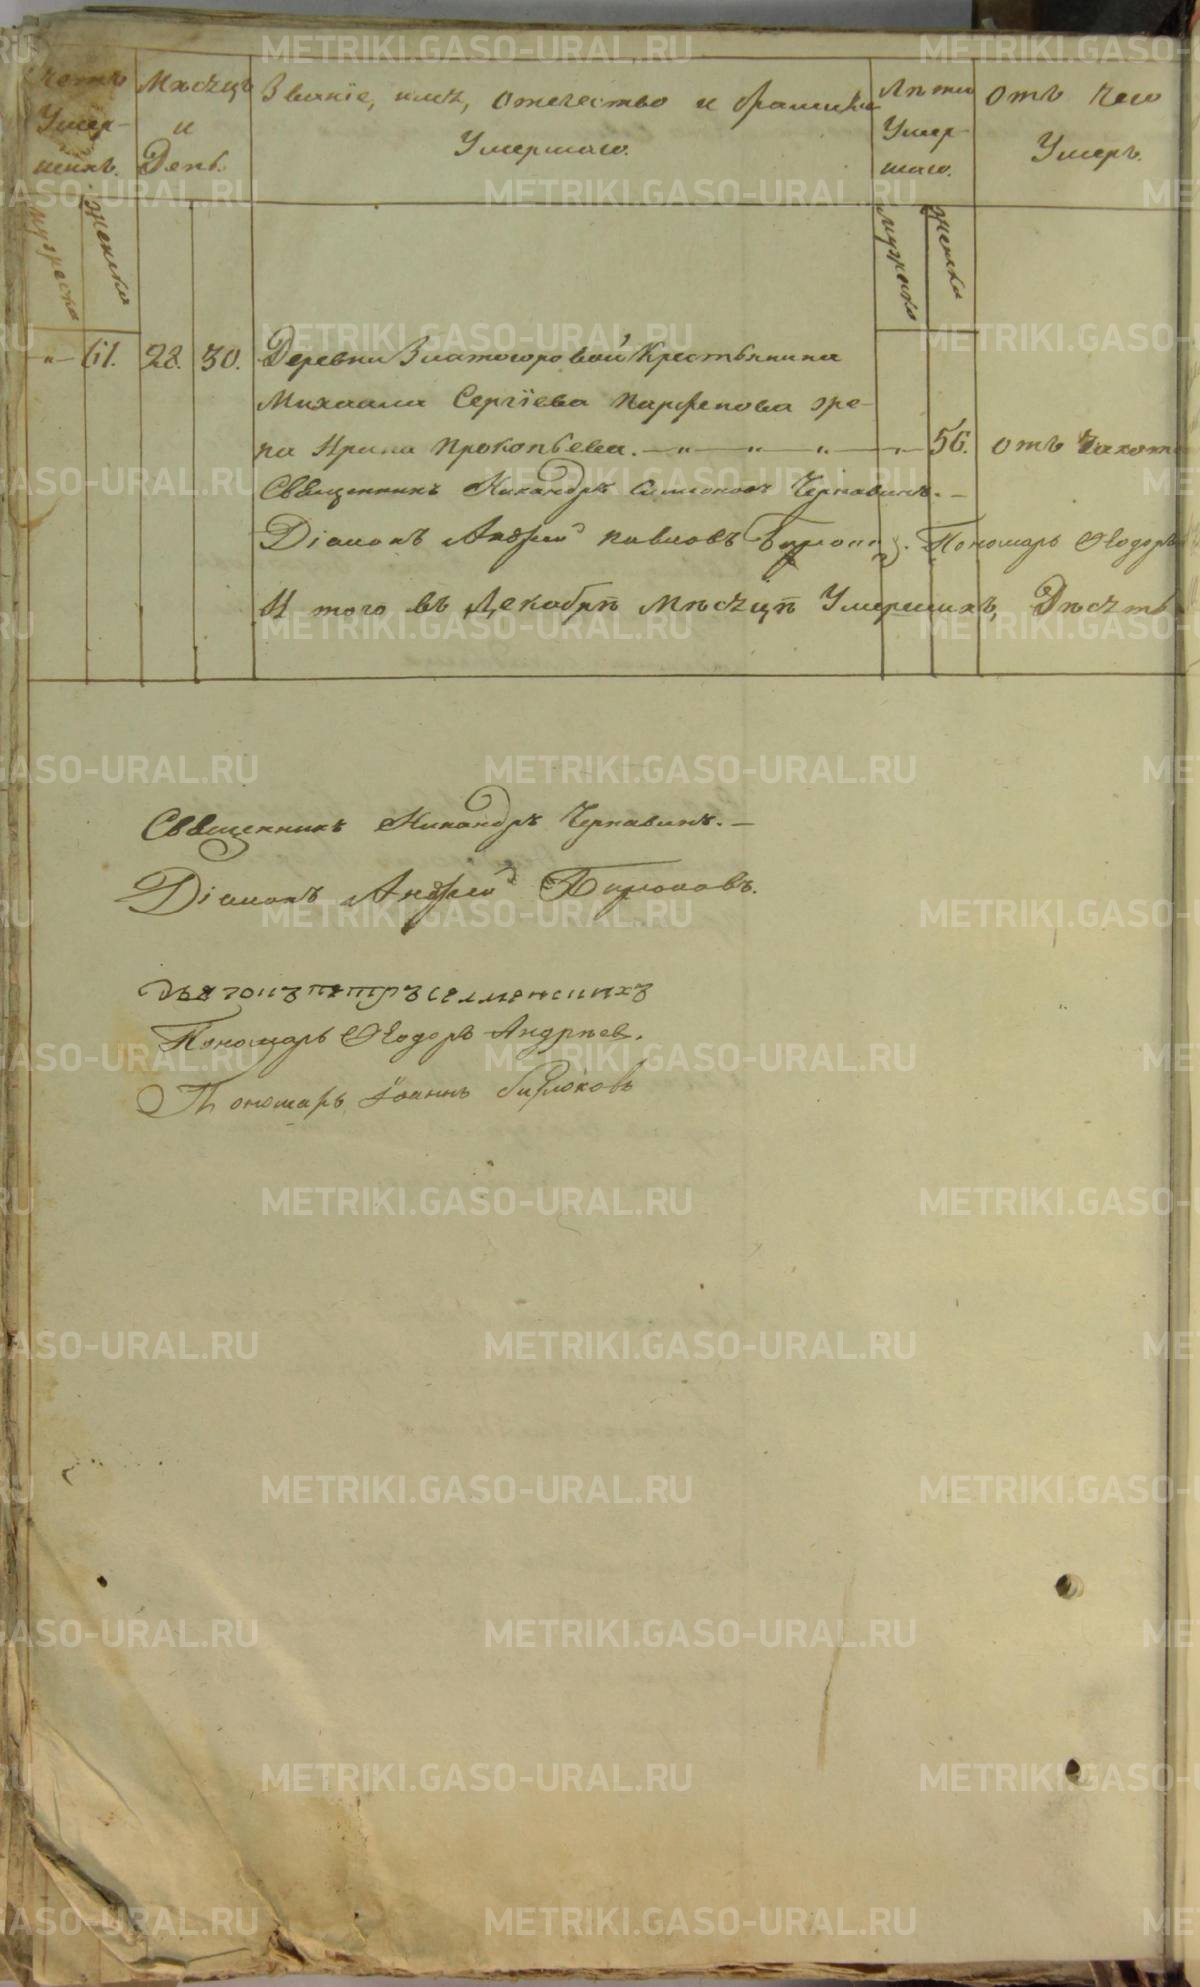 METRIKI.GASO-URAL.RU
Щетъ Умер-шихъ.
Мѣсяцъ и День.
Званіе, имя, отечество и фамилія
Умершаго.
Лѣта Умер-шаго.
Отъ чего
Умеръ.
мужеска
женска
мужеска
женска
" 61. 28. 30. Деревни Златогоровой Крестьянина
Михаила Сергіева Парфенова же-
на Ирина Прокопьева. — " — " — " — " — 56. отъ Чахот
Священникъ Никандръ Симоновъ Чернавинъ. —
Діаконъ Андрей Павловъ Пономарь Ѳеодоръ
И того въ Декабрѣ Мѣсяцѣ Умершихъ, Дѣсять
Священникъ Никандръ Чернавинъ. —
Діаконъ Андрей Бирюковъ.
Пономарь Ѳеодоръ Андрѣев.
Пономарь Іоаннъ Бирюковъ